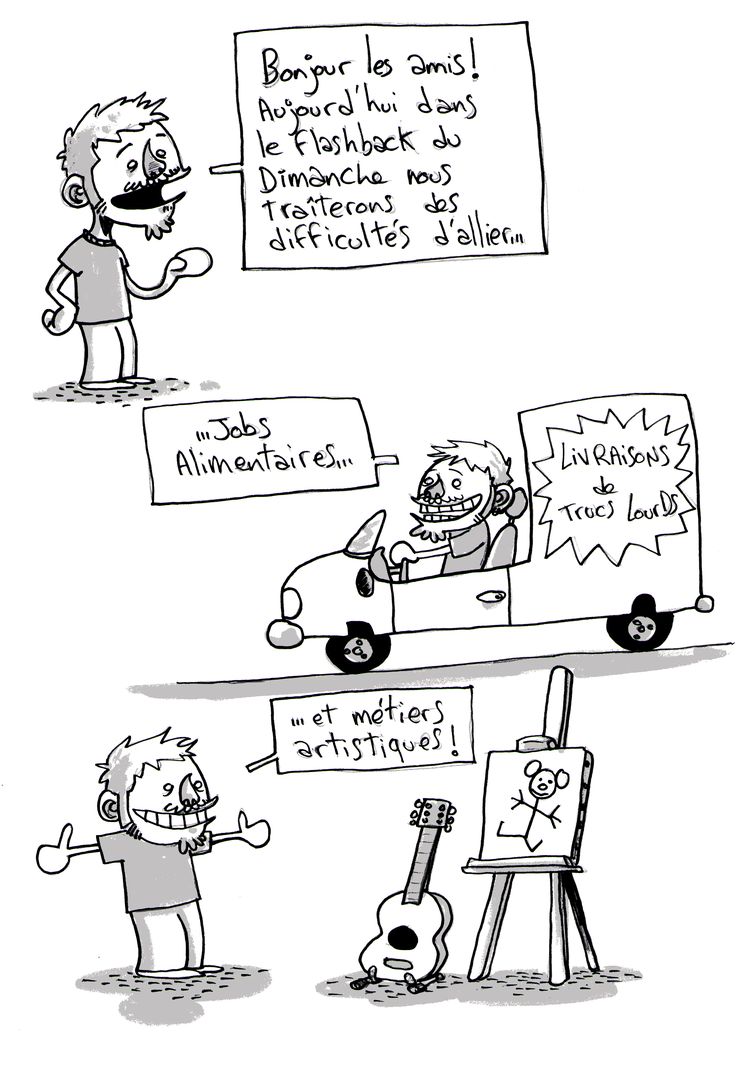 Bonjour les amis!
Aujourd'hui dans
le flashback du
Dimanche nous
traîterons des
difficultés d'allier...
...Jobs
Alimentaires...
LIVRAISONS
de
TRUCS LOURDS
...et métiers
artistiques!